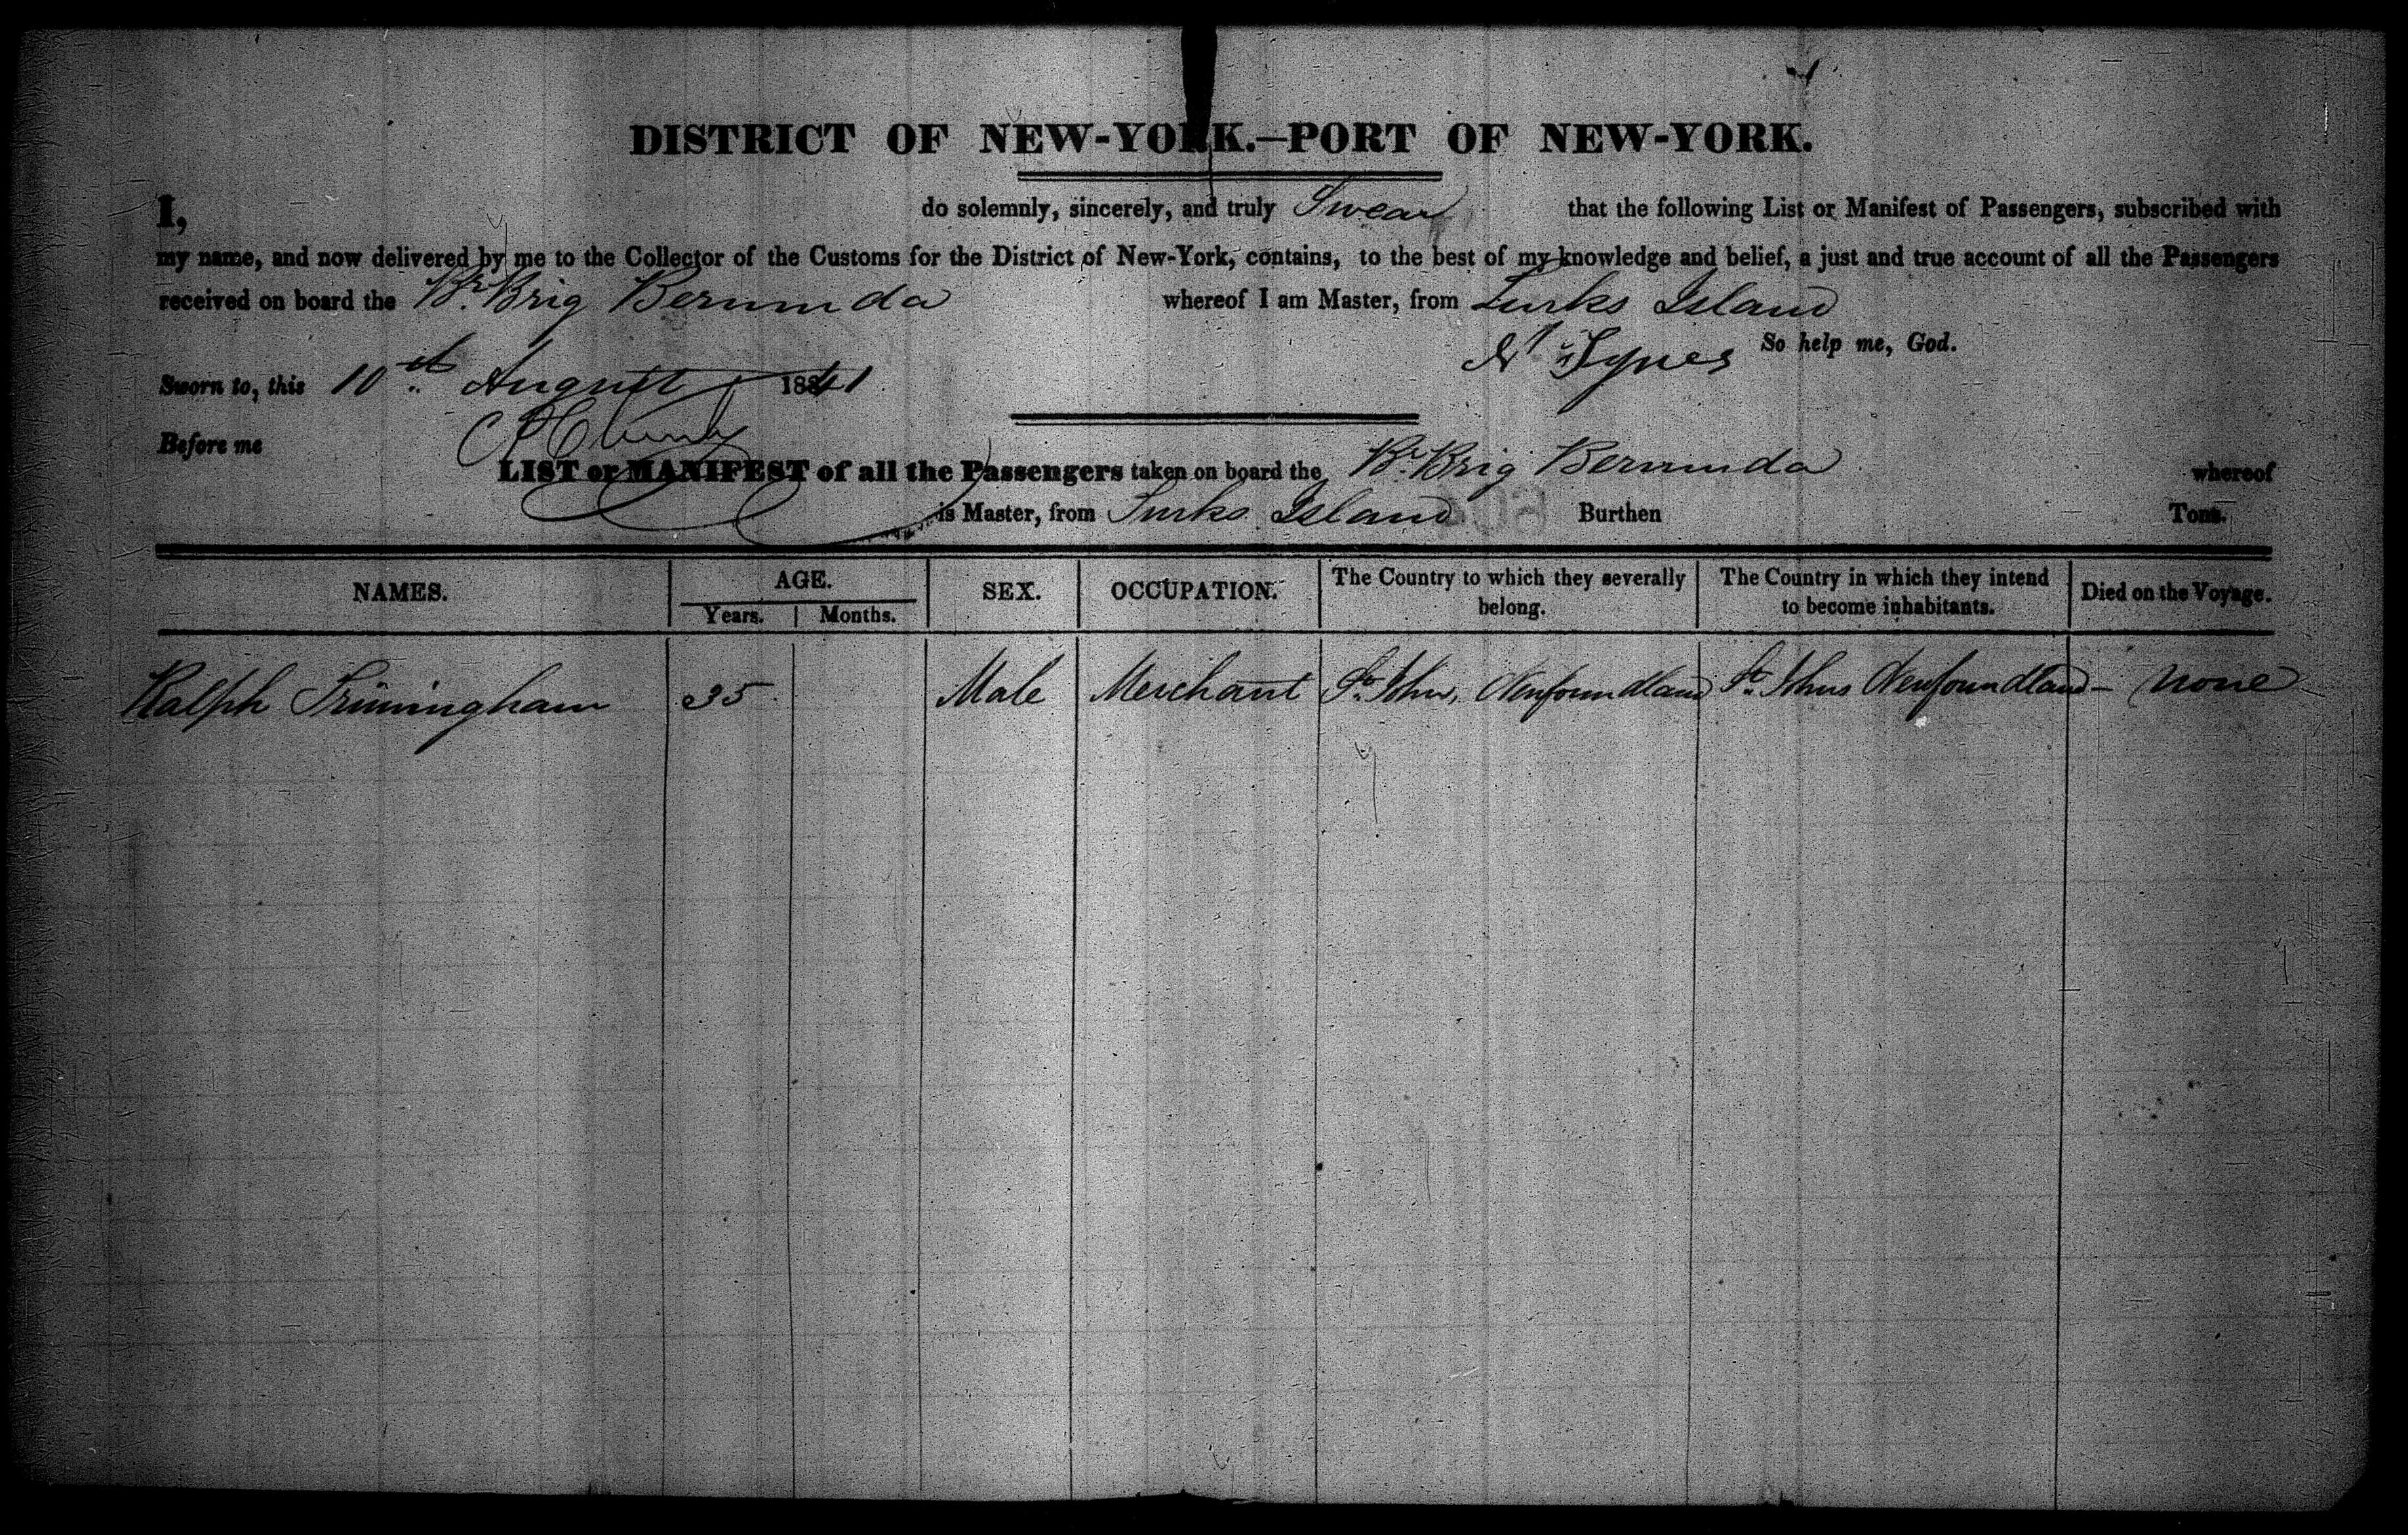 DISTRICT OF NEW-YORK.—PORT OF NEW-YORK.
I, do solemnly, sincerely, and truly Swear that the following List or Manifest of Passengers, subscribed with
my name, and now delivered by me to the Collector of the Customs for the District of New-York, contains, to the best of my knowledge and belief, a just and true account of all the Passengers
received on board the Br. Brig Bermuda whereof I am Master, from Turks Island
N Tynes So help me, God.
Sworn to, this 10th August 1841
Before me
LIST or MANIFEST of all the Passengers taken on board the Br. Brig Bermuda whereof
is Master, from Turks Island Burthen Tons.
NAMES. AGE. SEX. OCCUPATION. The Country to which they severally belong. The Country in which they intend to become inhabitants. Died on the Voyage.
Years. Months.
Ralph Trimingham 35 Male Merchant St. Johns, Newfoundland St. Johns Newfoundland — None